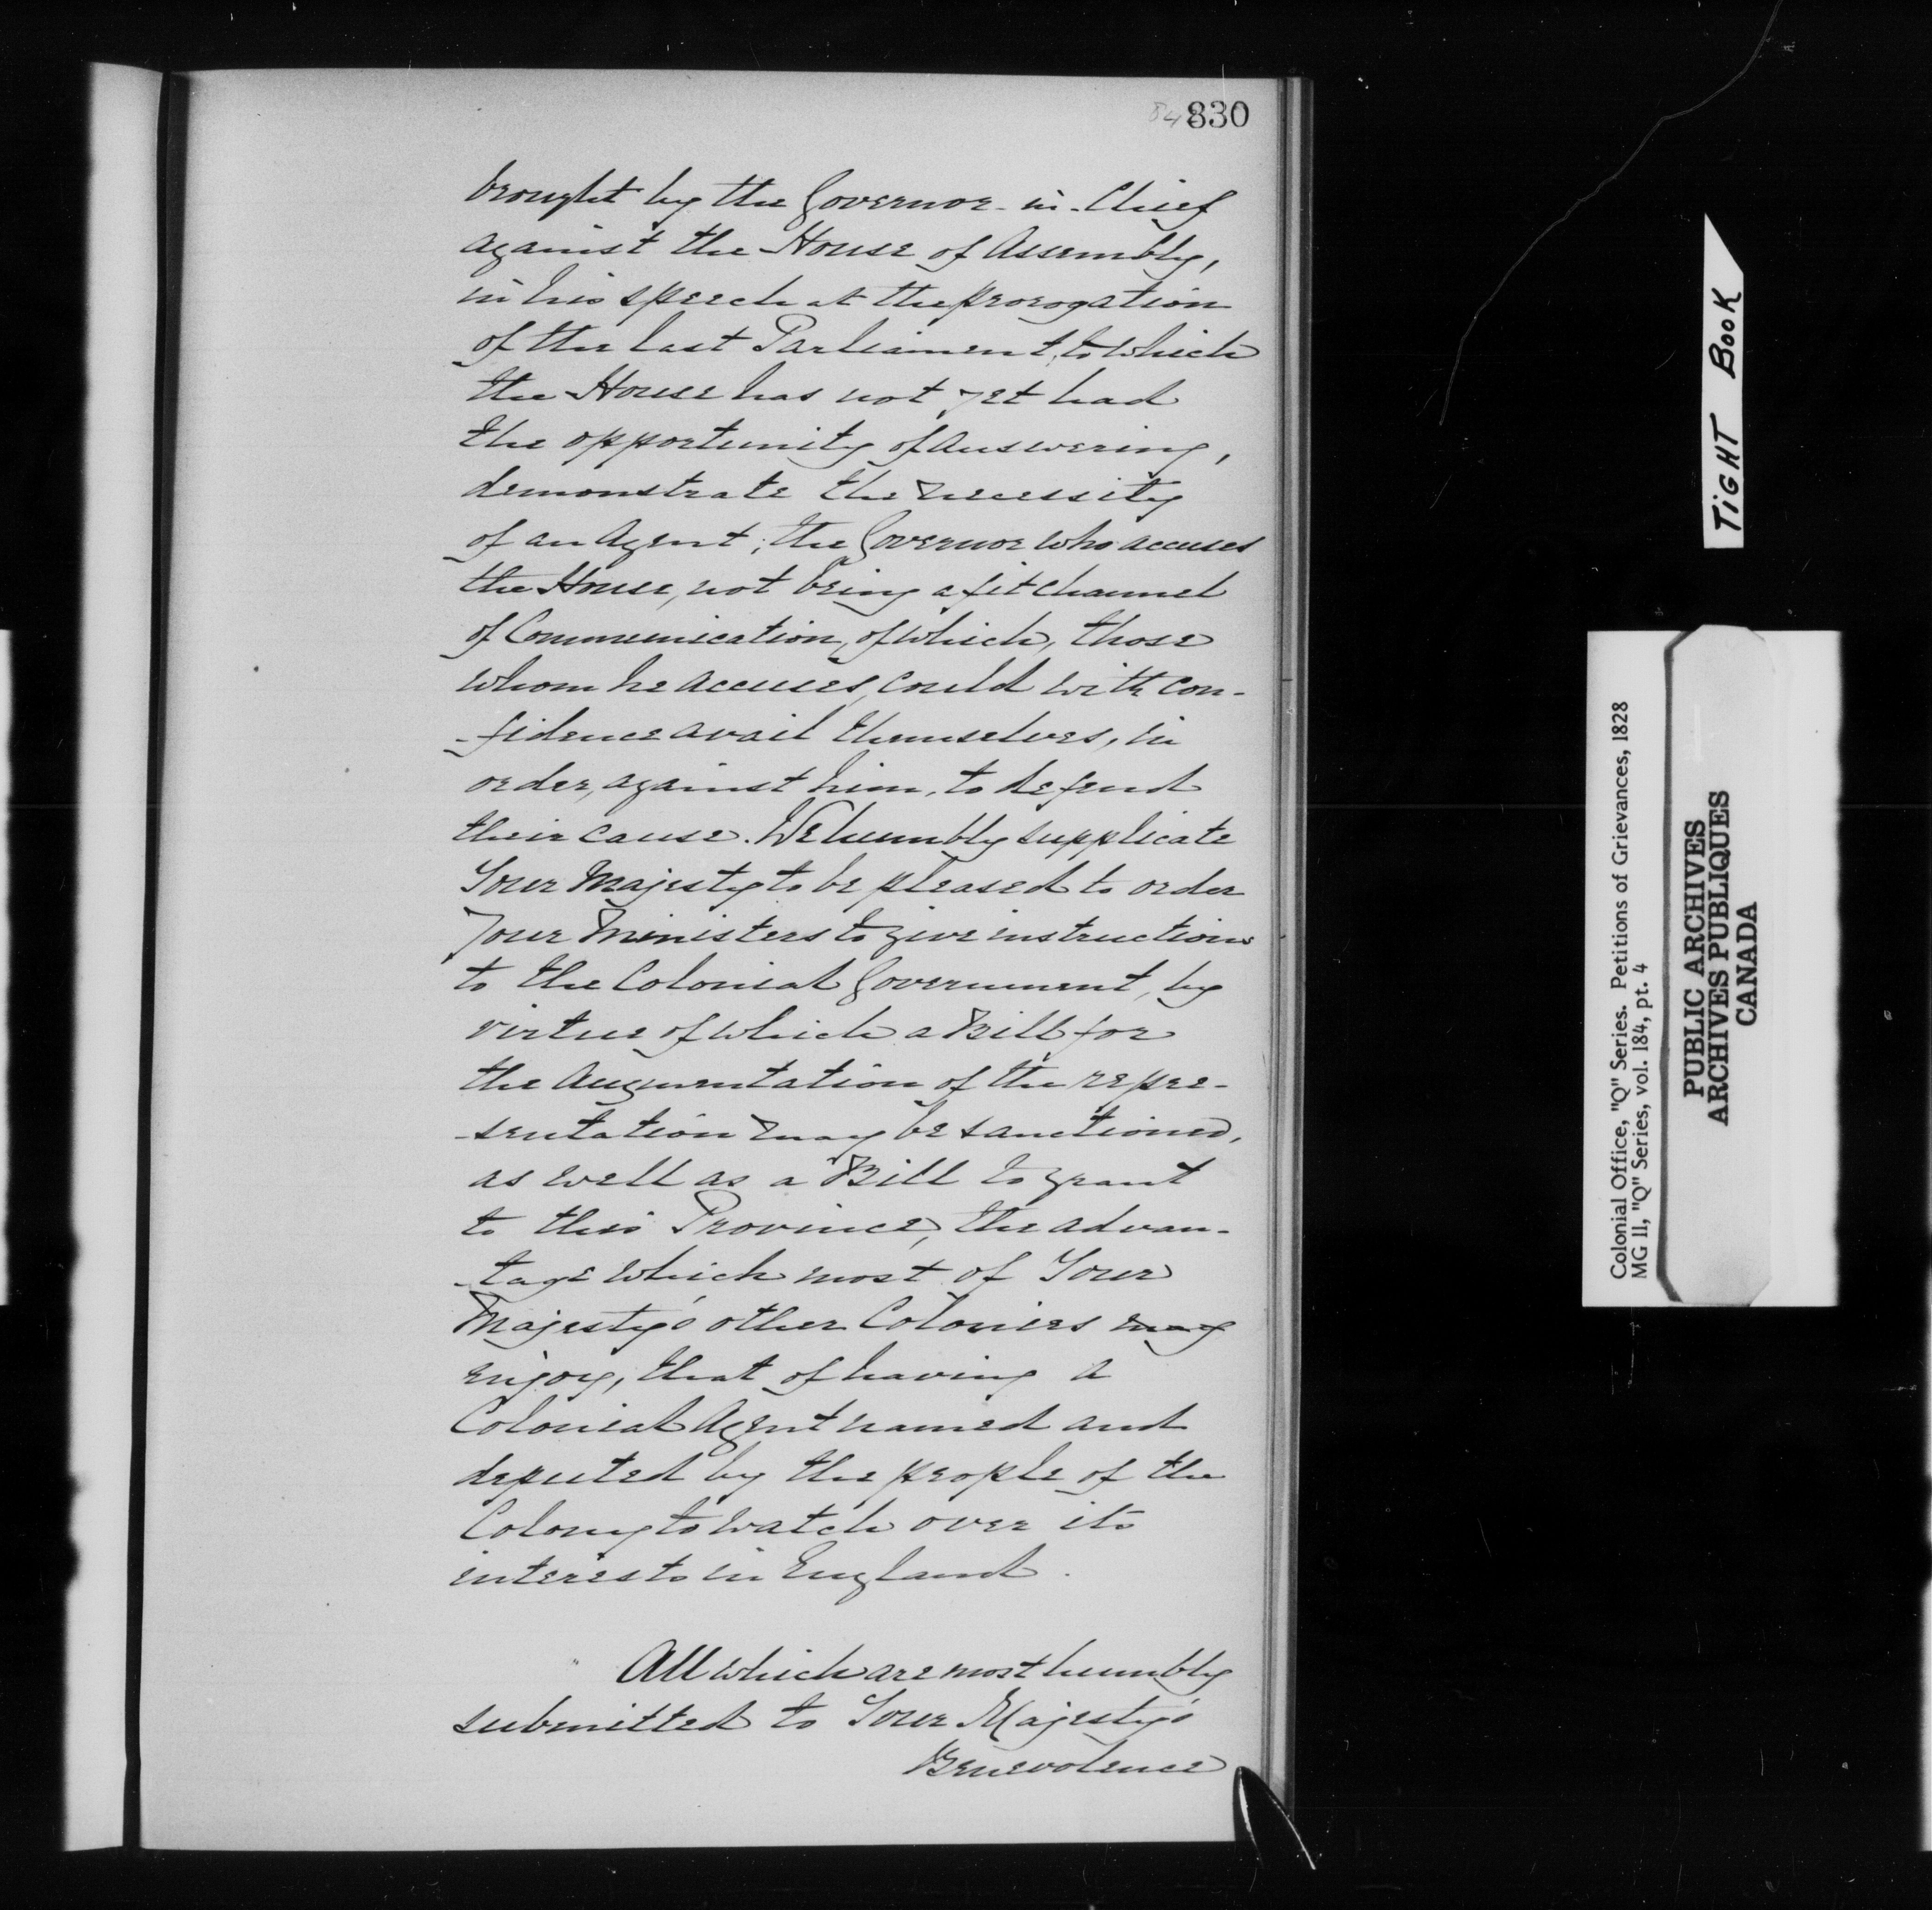 830
brought by the Governor-in-Chief
against the House of Assembly,
in his speech at the prorogation
of the last Parliament, to which
the House has not yet had
the opportunity of answering,
demonstrate the necessity
of an Agent; the Governor who accuses
the House, not being a fit channel
of Communication, of which, those
whom he accuses, could with con-
-fidence avail themselves, in
order, against him, to defend
their cause. We humbly supplicate
Your Majesty to be pleased to order
Your Ministers to give instructions
to the Colonial Government, by
virtue of which a Bill for
the Augmentation of the repre-
-sentation may be sanctioned,
as well as a Bill to grant
to this Province, the advan-
-tage which most of Your
Majesty's other Colonies may
enjoy, that of having a
Colonial Agent named and
deputed by the people of the
Colony to watch over its
interests in England.
All which are most humbly
submitted to Your Majesty's
Benevolence
TIGHT BOOK
Colonial Office, "Q" Series. Petitions of Grievances, 1828
MG 11, "Q" Series, vol. 184, pt. 4
PUBLIC ARCHIVES
ARCHIVES PUBLIQUES
CANADA